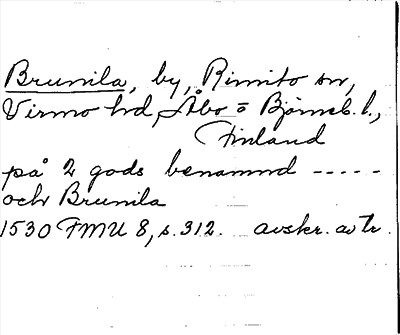 Brunila, by, Rimito sn,
Virmo hd, Åbo o Björneb. l.,
Finland
på 2 gods benämnd -----
och Brunila
1530 FMU 8, s. 312. avskr. av tr.